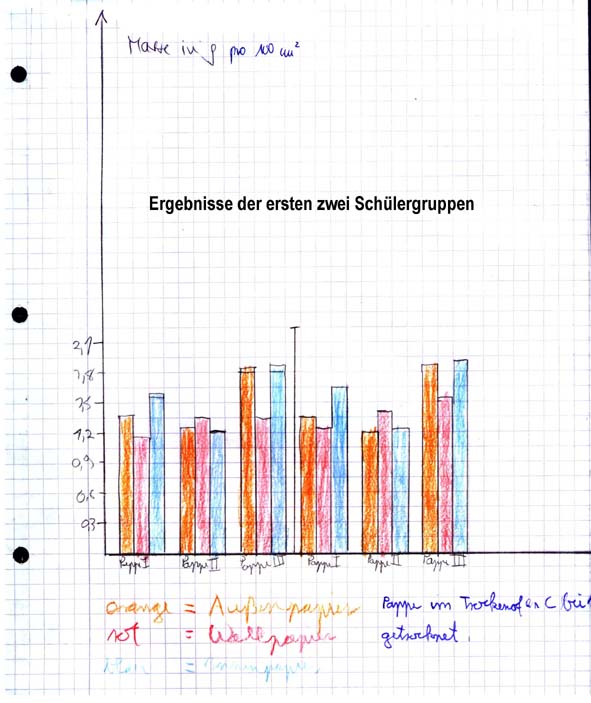 Masse in g pro 100 cm²
Ergebnisse der ersten zwei Schülergruppen
2,1
1,8
1,5
1,2
0,9
0,6
0,3
Pappe I Pappe II Pappe III Pappe I Pappe II Pappe III
orange = Außenpapier
rot = Wellpapier
blau = Innenpapier
Pappe im Trockenofen C bei
getrocknet.